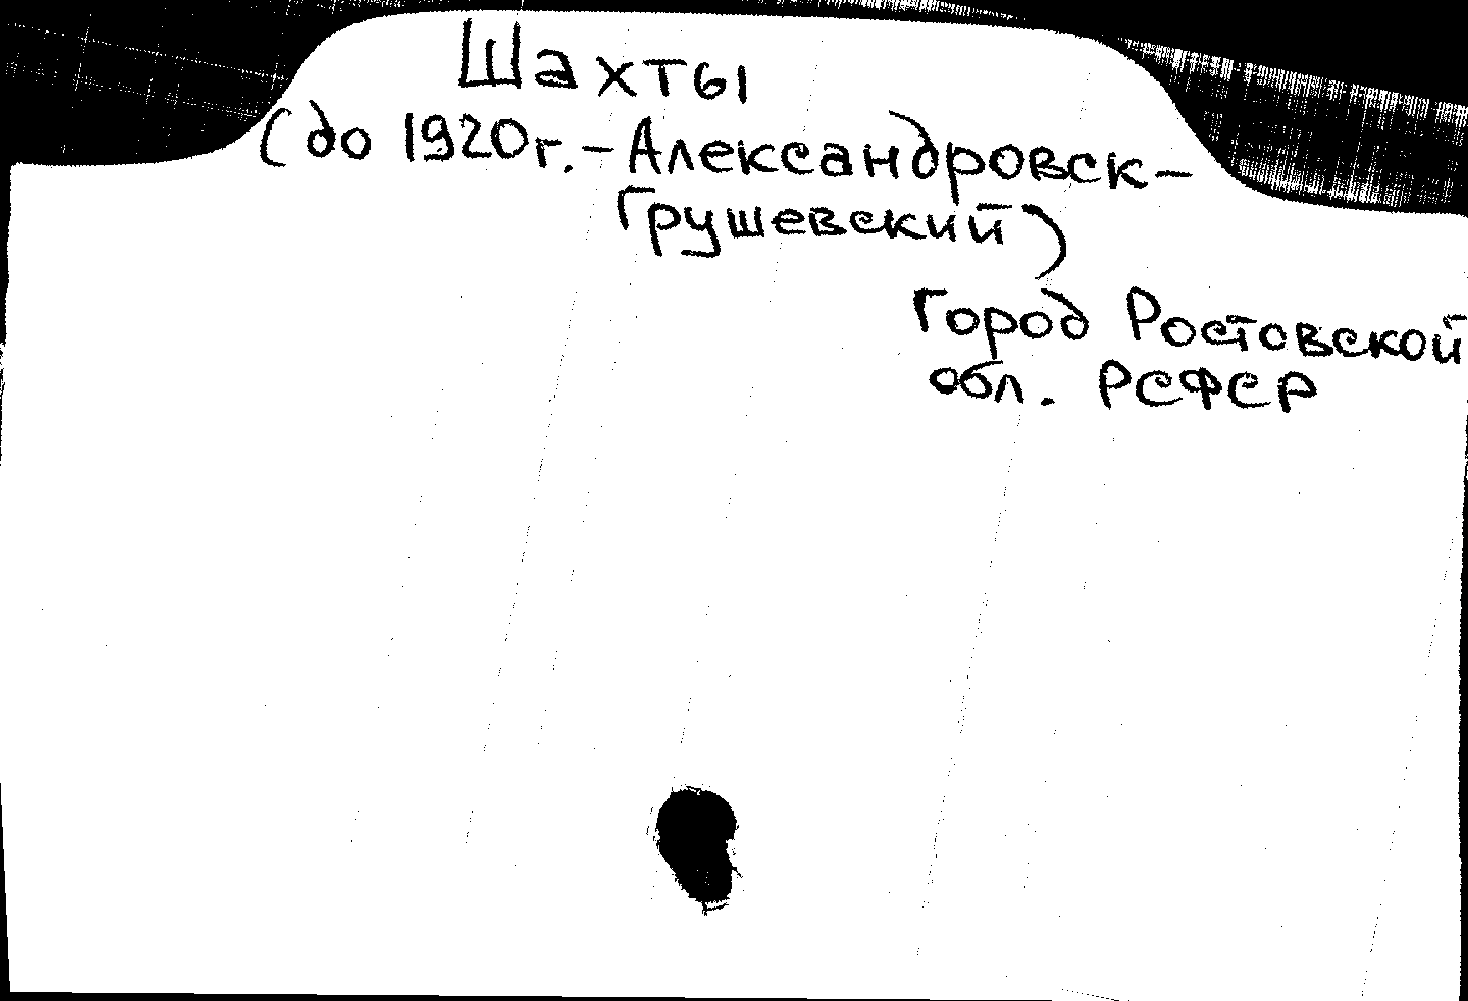 Шахты
(до 1920г. - Александровск-
Грушевский)
Город Ростовской
обл. РСФСР